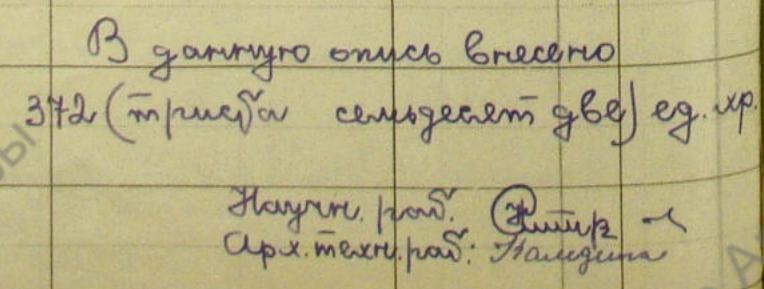 В данную опись внесено
372 (триста семьдесят две) ед. хр.
Научн. раб.
Арх. техн. раб: